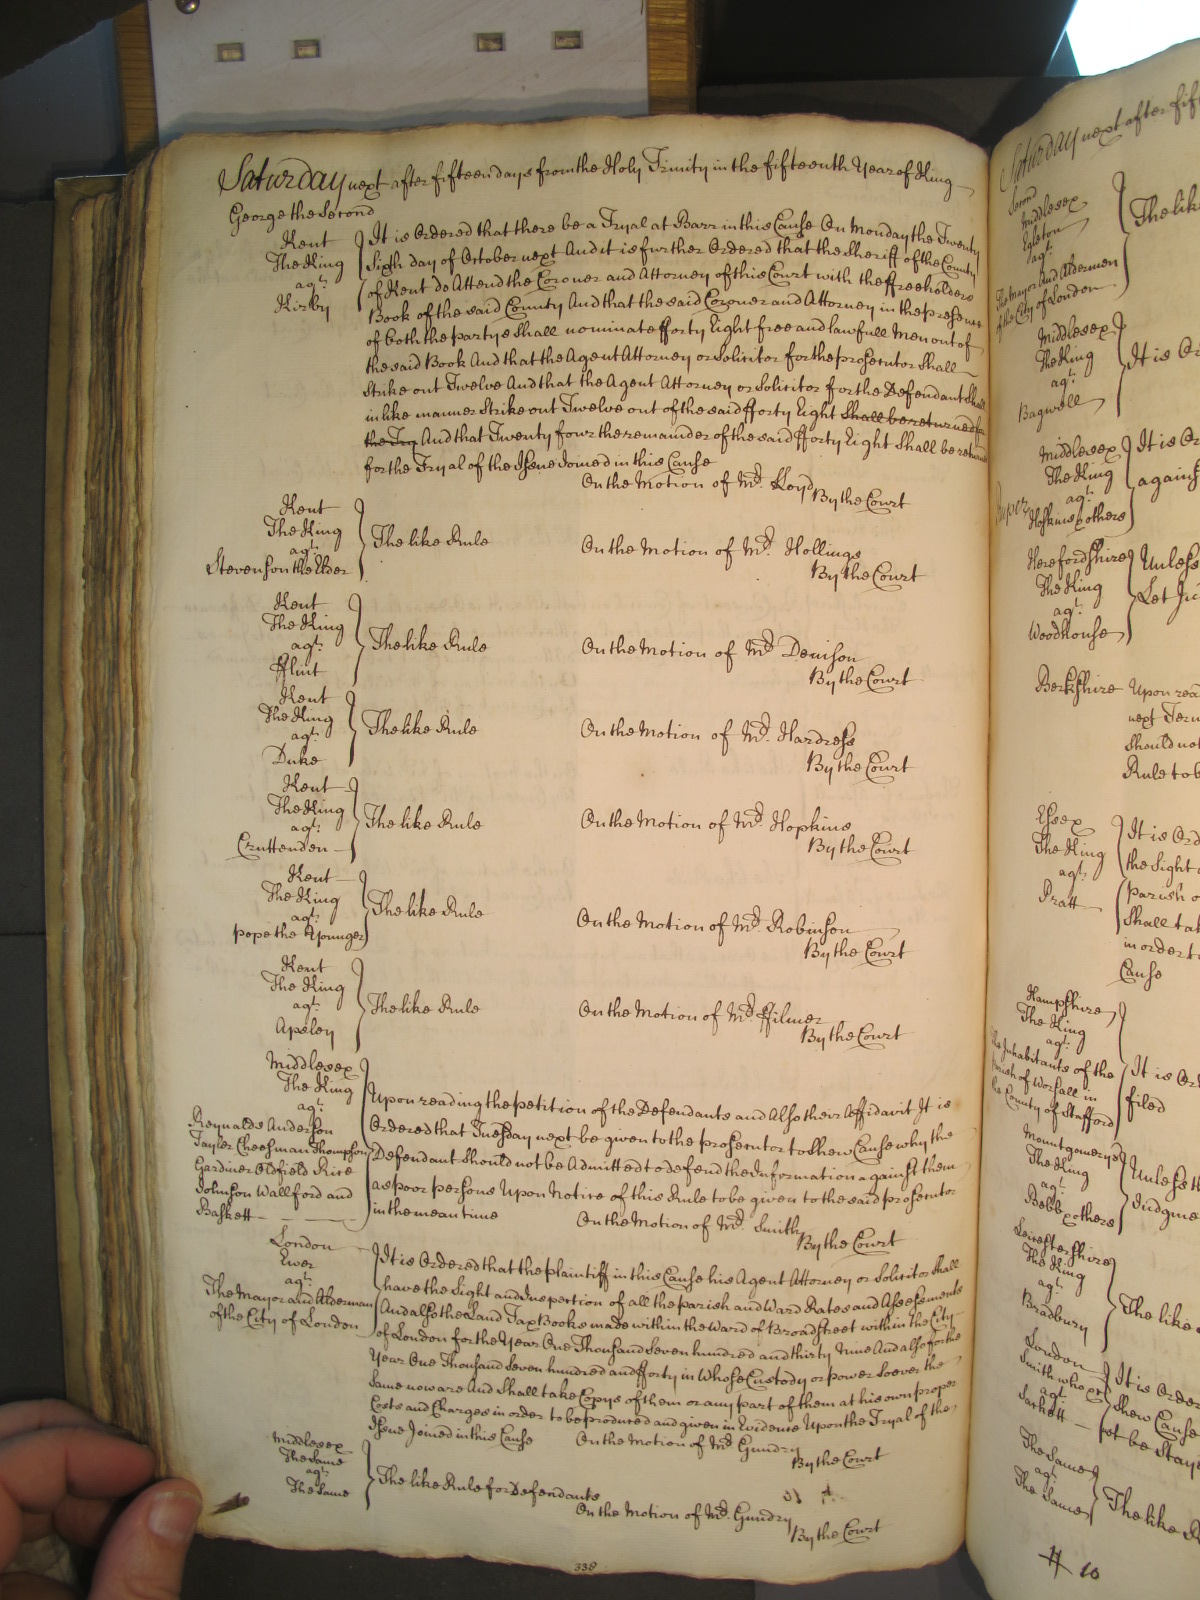 Saturday next after fifteen days from the Holy Trinity in the fifteenth Year of King
George the Second
Kent
The King
agt.
Kirby
It is Ordered that there be a Tryal at Barr in this Cause On Monday the Twenty
Sixth day of October next And it is further Ordered that the Sheriff of the County
of Kent do Attend the Coroner and Attorney of this Court with the ffreeholders
Book of the said County And that the said Coroner and Attorney in the presence
of both the partys Shall nominate fforty Eight free and lawfull Men out of
the said Book And that the Agent Attorney or Solicitor for the prosecutor Shall
Strike out Twelve And that the Agent Attorney or Solicitor for the Defendant Shall
in like manner Strike out Twelve out of the said fforty Eight Shall be returned for
the Try And that Twenty four the remainder of the said fforty Eight Shall be returned
for the Tryal of the Issue Joined in this Cause
On the Motion of Mr. Loyd
By the Court
Kent
The King
agt.
Stevenson the Elder
The like Rule
On the Motion of Mr. Hollings
By the Court
Kent
The King
agt.
fflint
The like Rule
On the Motion of Mr. Denison
By the Court
Kent
The King
agt.
Duke
The like Rule
On the Motion of Mr. Hardress
By the Court
Kent
The King
agt.
Cruttenden
The like Rule
On the Motion of Mr. Hopkins
By the Court
Kent
The King
agt.
pope the Younger
The like Rule
On the Motion of Mr. Robinson
By the Court
Kent
The King
agt.
Apsley
The like Rule
On the Motion of Mr. ffilmer
By the Court
Middlesex
The King
agt.
Reynalds Anderson
Tayler Cheesman Thompson
Gardiner Oldfield Rice
Johnson Wallford and
Baskett
Upon reading the petition of the Defendants and Also their Affidavit It is
Ordered that Tuesday next be given to the prosecutor to shew Cause why the
Defendant Should not be Admitted to defend the Information against them
as poor persons Upon Notice of this Rule to be given to the said prosecutor
in the mean time
On the Motion of Mr. Smith
By the Court
London
Ewer
agt.
The Mayor and Alderman
of the City of London
It is Ordered that the plaintiff in this Cause his Agent Attorney or Solicitor Shall
have the Sight and Inspection of all the parish and Ward Rates and Assessments
And also the Land Tax Books made within the Ward of Broadstreet within the City
of London for the Year One Thousand Seven hundred and thirty Nine And also for the
Year One Thousand Seven hundred and fforty in Whose Custody or power Soever the
Same now are And Shall take Copys of them or any part of them at his own proper
Costs and Charges in order to be produced and given in Evidence Upon the Tryal of the
Issue Joined in this Cause
On the Motion of Mr. Gundry
By the Court
Middlesex
The Same
agt.
The Same
The like Rule for Defendants
On the Motion of Mr. Gundry
By the Court
338
Saturday next after fif
Second
Middlesex
Egleton
agt.
The Mayor and Aldermen
of the City of London
The like
Middlesex
The King
agt.
Bagwell
It is Or
Middlesex
The King
agt.
Hoskins & others
It is Or
against
Herefordshire
The King
agt.
Woodhouse
Unless
Let Ju
Berkshire
Upon rea
next Term
Should not
Rule to b
Essex
The King
agt.
Pratt
It is Ord
the Sight
parish o
Shall tak
in order t
Cause
Hampshire
The King
agt.
The Inhabitants of the
parish of Worfall in
the County of Stafford
It is Or
filed
Montgomerys
The King
agt.
Bebb & others
Unless th
Judgme
Leicestershire
The King
agt.
Bradbury
The like
London
Smith who &c
agt.
Sarkett
It is Order
Shew Cause
not be Stay
The Same
agt.
The Same
The like R
10